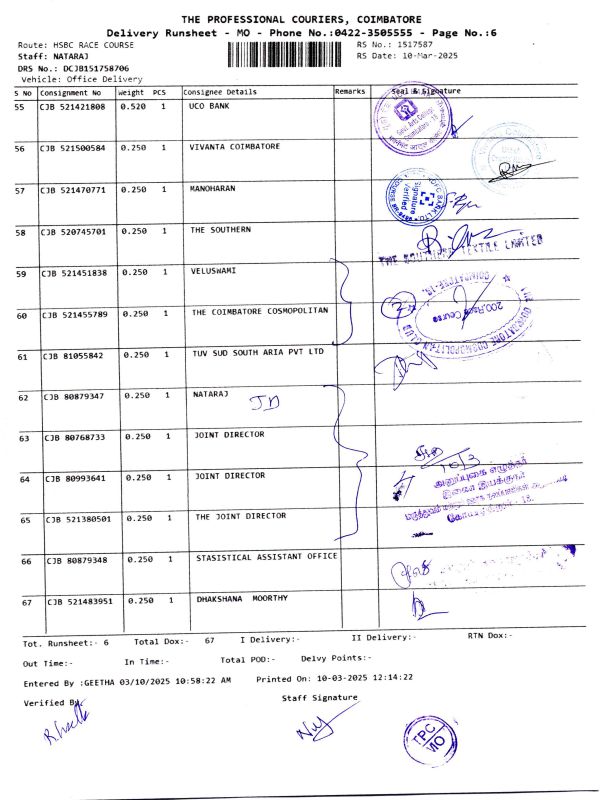 THE PROFESSIONAL COURIERS, COIMBATORE
Delivery Runsheet - MO - Phone No.:0422-3505555 - Page No.:6
Route: HSBC RACE COURSE RS No.: 1517587
Staff: NATARAJ RS Date: 10-Mar-2025
DRS No.: DCJB151758706
Vehicle: Office Delivery
S No Consignment No Weight PCS Consignee Details Remarks Seal & Signature
55 CJB 521421808 0.520 1 UCO BANK
56 CJB 521500584 0.250 1 VIVANTA COIMBATORE
57 CJB 521470771 0.250 1 MANOHARAN
58 CJB 520745701 0.250 1 THE SOUTHERN
THE SOUTHERN TEXTILE LIMITED
59 CJB 521451838 0.250 1 VELUSWAMI
60 CJB 521455789 0.250 1 THE COIMBATORE COSMOPOLITAN
THE COIMBATORE COSMOPOLITAN CLUB
200, Race Course
COIMBATORE-18
61 CJB 81055842 0.250 1 TUV SUD SOUTH ARIA PVT LTD
62 CJB 80879347 0.250 1 NATARAJ
JD
63 CJB 80768733 0.250 1 JOINT DIRECTOR
10/3
64 CJB 80993641 0.250 1 JOINT DIRECTOR
65 CJB 521380501 0.250 1 THE JOINT DIRECTOR
66 CJB 80879348 0.250 1 STASISTICAL ASSISTANT OFFICE
67 CJB 521483951 0.250 1 DHAKSHANA MOORTHY
Tot. Runsheet:- 6 Total Dox:- 67 I Delivery:- II Delivery:- RTN Dox:-
Out Time:- In Time:- Total POD:- Delvy Points:-
Entered By :GEETHA 03/10/2025 10:58:22 AM Printed On: 10-03-2025 12:14:22
Verified By: Staff Signature
TPC
MO